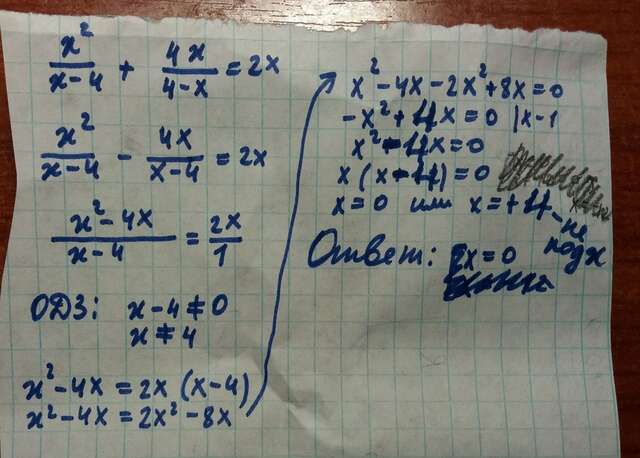 x²/(x-4) + 4x/(4-x) = 2x
x²/(x-4) - 4x/(x-4) = 2x
(x²-4x)/(x-4) = 2x/1
ОДЗ: x-4≠0
x≠4
x²-4x = 2x(x-4)
x²-4x = 2x²-8x
x²-4x-2x²+8x=0
-x²+4x=0 |x-1
x²-4x=0
x(x-4)=0
x=0 или x=+4 - не подх
Ответ: x=0